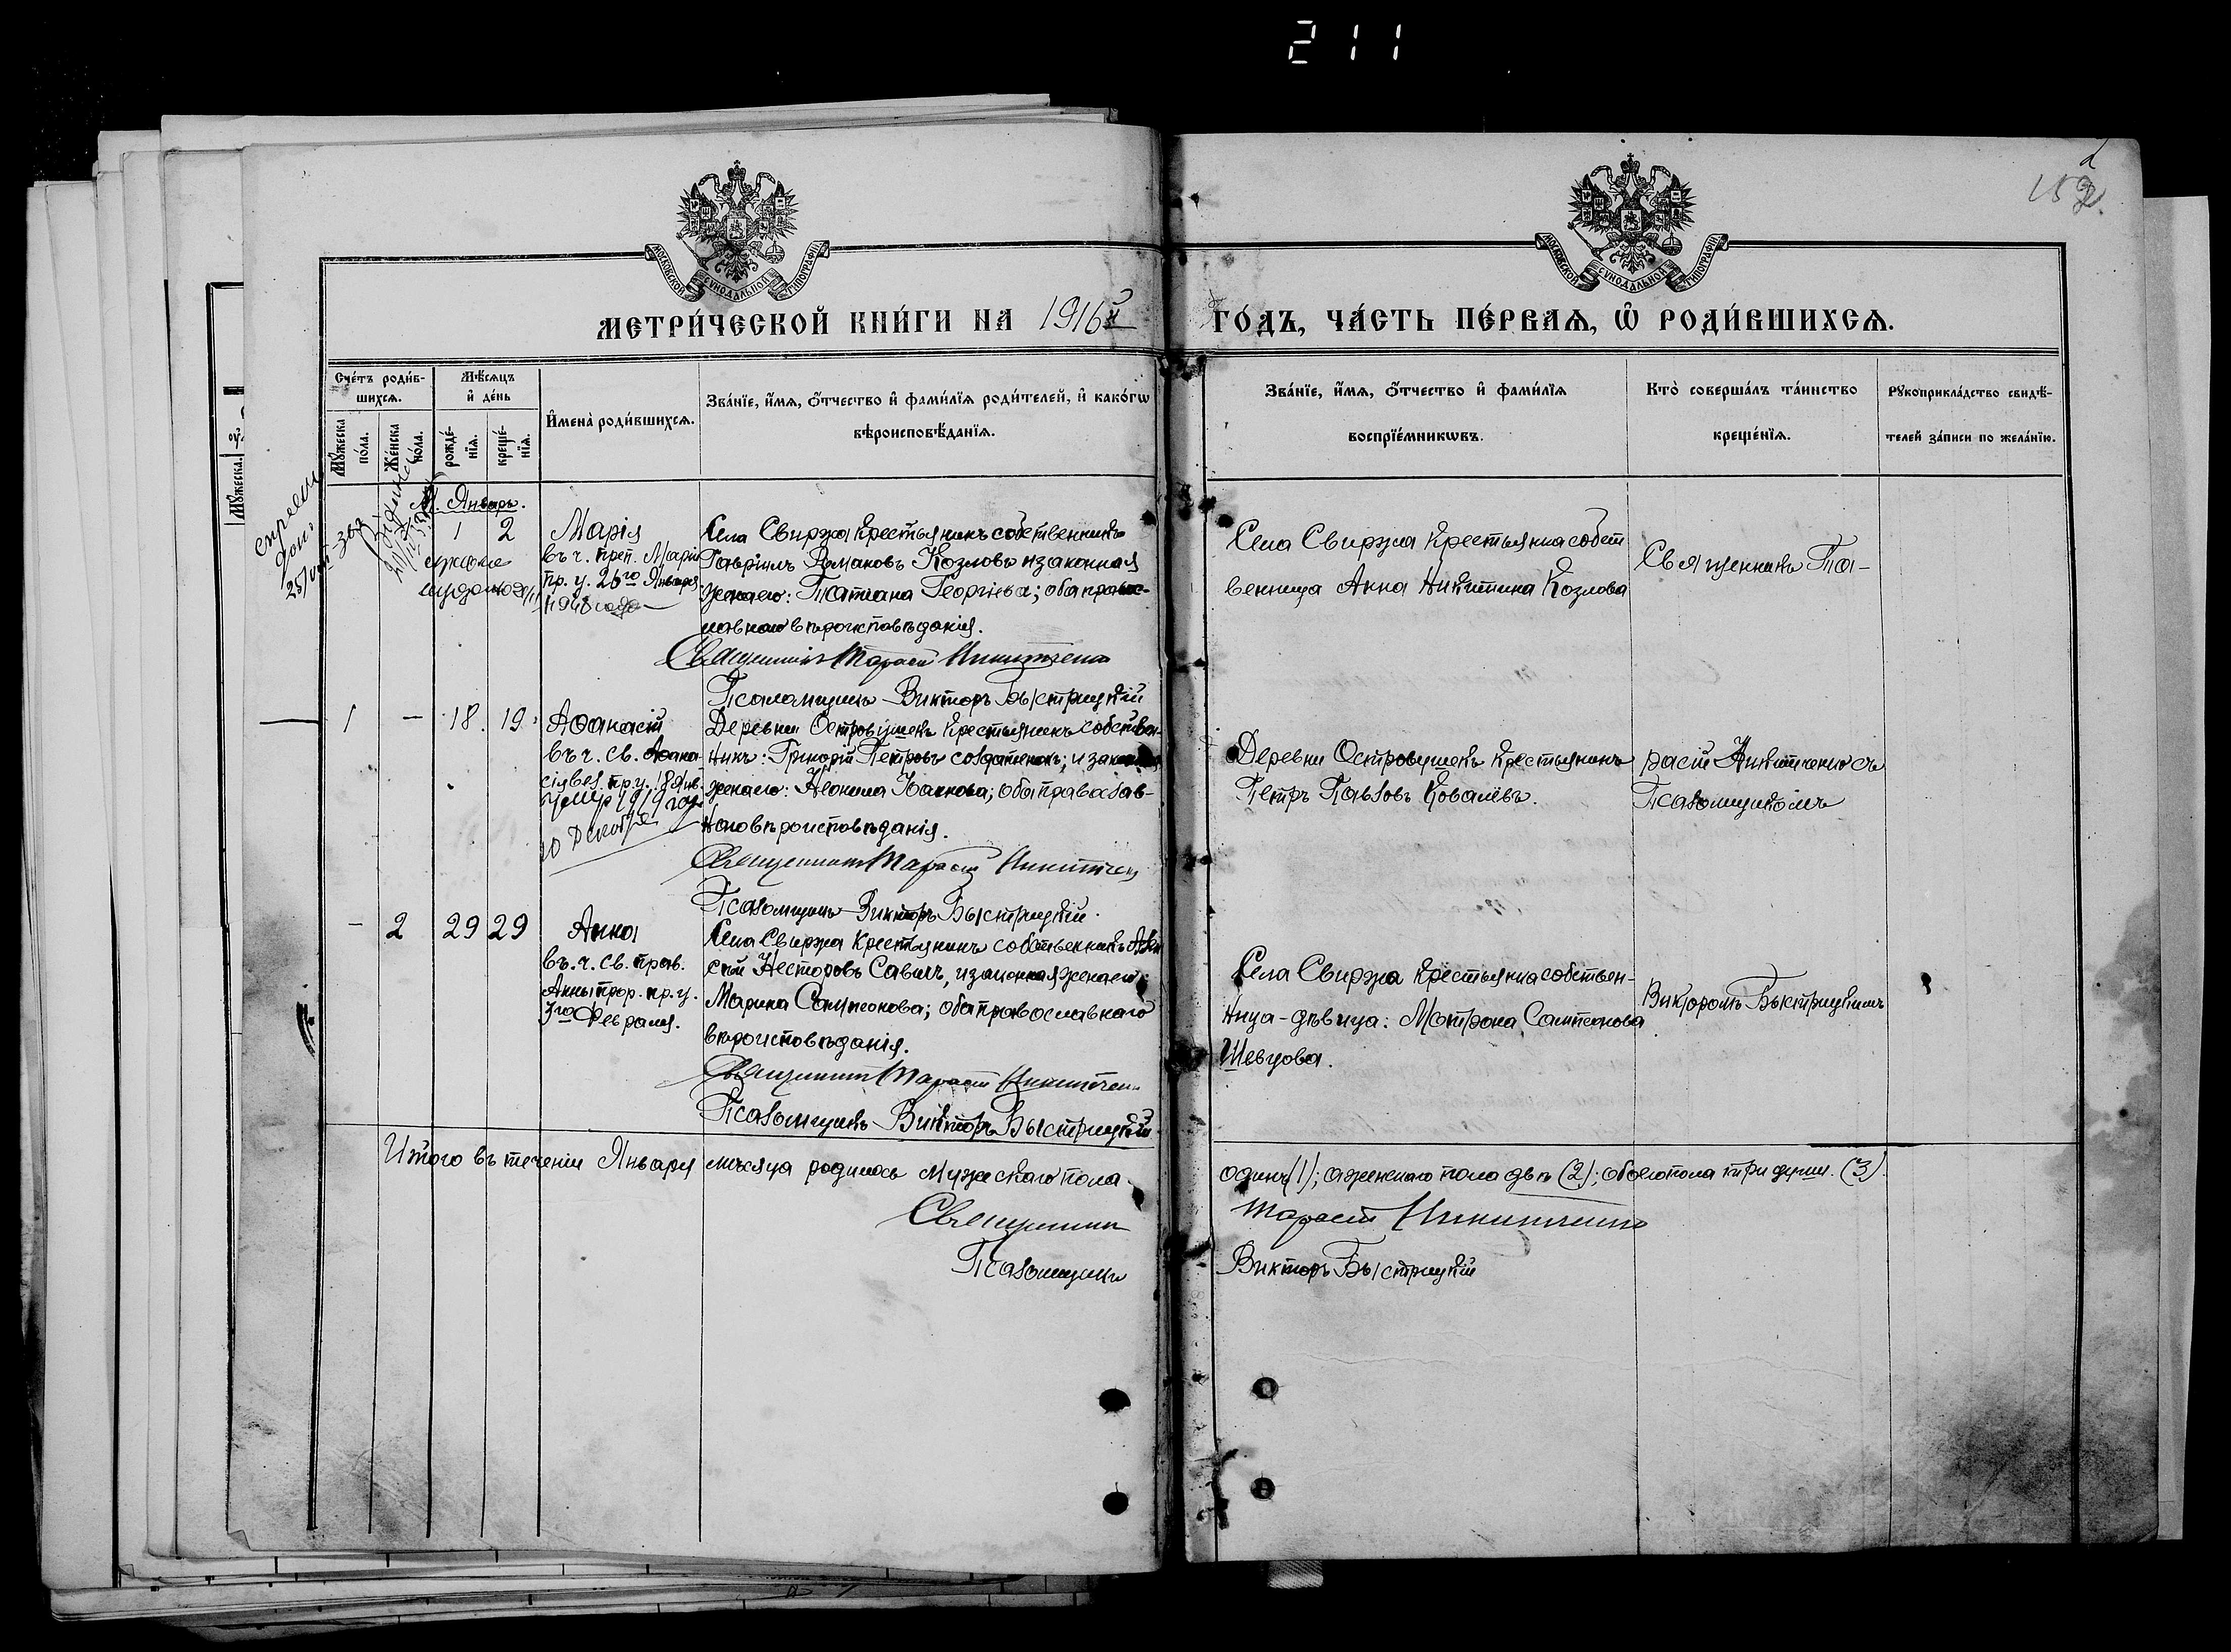 211
2
152
МОСКОВСКОЙ СѴНОДАЛЬНОЙ ТИПОГРАФІИ
МОСКОВСКОЙ СѴНОДАЛЬНОЙ ТИПОГРАФІИ
МЕТРИ́ЧЕСКОЙ КНИ́ГИ НА 1916й ГО́ДЪ, ЧА́СТЬ ПЕ́РВАѦ, Ѡ РОДИ́ВШИХСѦ.
Сче́тъ роди́в-
шихсѧ.
Мꙋ́жеска
по́ла.
Же́нска
по́ла.
Мѣ́сѧцъ
и҆ де́нь
рожде́-
нїѧ.
креще́-
нїѧ.
И҆мена̀ роди́вшихсѧ.
Зва́нїе, и҆́мѧ, ѻ҆́тчество и҆ фами́лїѧ роди́телей, и҆ како́гѡ
вѣроисповѣ́данїѧ.
Зва́нїе, и҆́мѧ, ѻ҆́тчество и҆ фами́лїѧ
воспрїе́мникѡвъ.
Кто̀ соверша́лъ та́инство
креще́нїѧ.
Рꙋкоприкла́дство свидѣ́-
телей за́писи по жела́нїю.
М. Январь.
1 2
Марія
въ ч. преп. Маріи
пр. у. 26го Января
Села Свиржа крестьянинъ собственникъ
Гавріилъ Козловъ и законная
жена его: Татіана Георгіева; оба правос-
лавнаго вѣроисповѣданія.
Священникъ Тарасій Никитченко
Псаломщикъ Викторъ Быстрицкій
Села Свиржа крестьянка собст
венница Анна Никитина Козлова
Священникъ Та-
1 — 18. 19.
Аѳанасій
въ ч. св. Аѳана-
сія вел. пр. у. 18 Янв.
умер 1919 году
10 Декабря
Деревни Островушекъ крестьянинъ собствен-
никъ: Григорій Петровъ и
жена его: Неонила Іванова; оба православ-
наго вѣроисповѣданія.
Священникъ Тарасій Никитчен
Псаломщикъ Викторъ Быстрицкій.
Деревни Островушекъ крестьянинъ
Петръ Павловъ Ковалёвъ.
расій Никитченко съ
Псаломщикомъ
— 2 29 29
Анна
въ. ч. св. прав.
Анны прор. пр. у.
3го Февраля.
Села Свиржа крестьянинъ собственникъ
Несторовъ Савичъ, и законная жена его:
Марина Сампсонова; оба православнаго
вѣроисповѣданія.
Священникъ Тарасій Никитчен
Псаломщикъ Викторъ Быстрицкій
Села Свиржа крестьянка собствен-
ница-дѣвица: Матрона Сампсонова
Шевцова.
Викторомъ Быстрицкимъ
Итого въ теченіи Января мѣсяца родилось мужескаго пола одинъ (1); а женскаго пола двѣ (2); обоего пола три души. (3).
Священник Тарасій Никитченко
Псаломщикъ Викторъ Быстрицкій